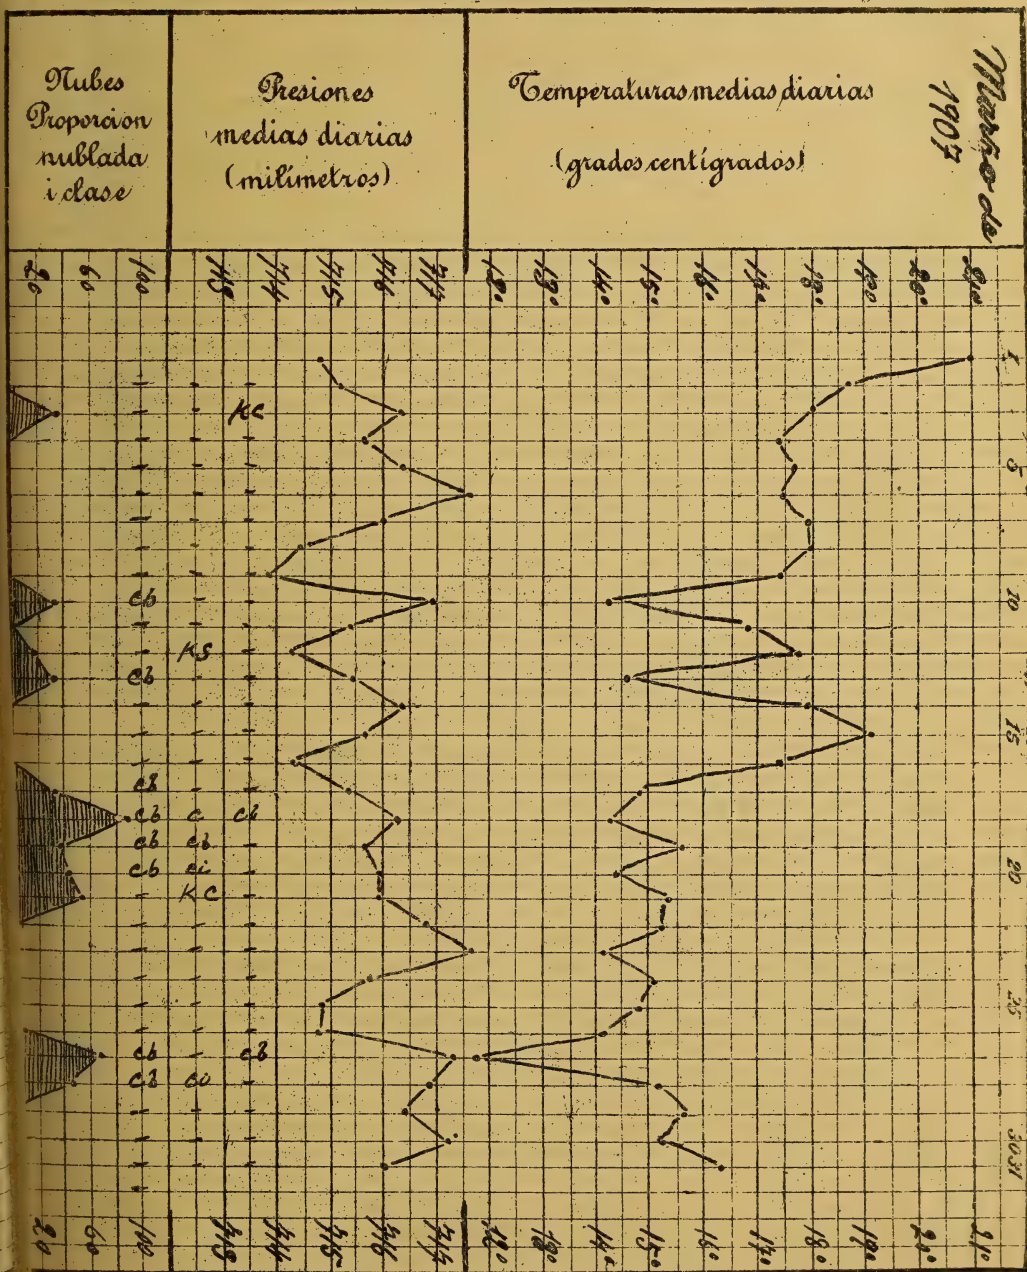 Nubes
Proporcion
nublada
i clase
Presiones
medias diarias
(milímetros)
Temperaturas medias diarias
(grados centígrados)
Marzo de
1907
20 60 100 713 714 715 716 717 12° 13° 14° 15° 16° 17° 18° 19° 20° 21°
1
KC
5
cb 10
KS
cb
15
cb
cb c cb
cb cb
cb ci 20
KC
25
cb cb
cb
30 31
20 60 100 713 714 715 716 717 12° 13° 14° 15° 16° 17° 18° 19° 20° 21°